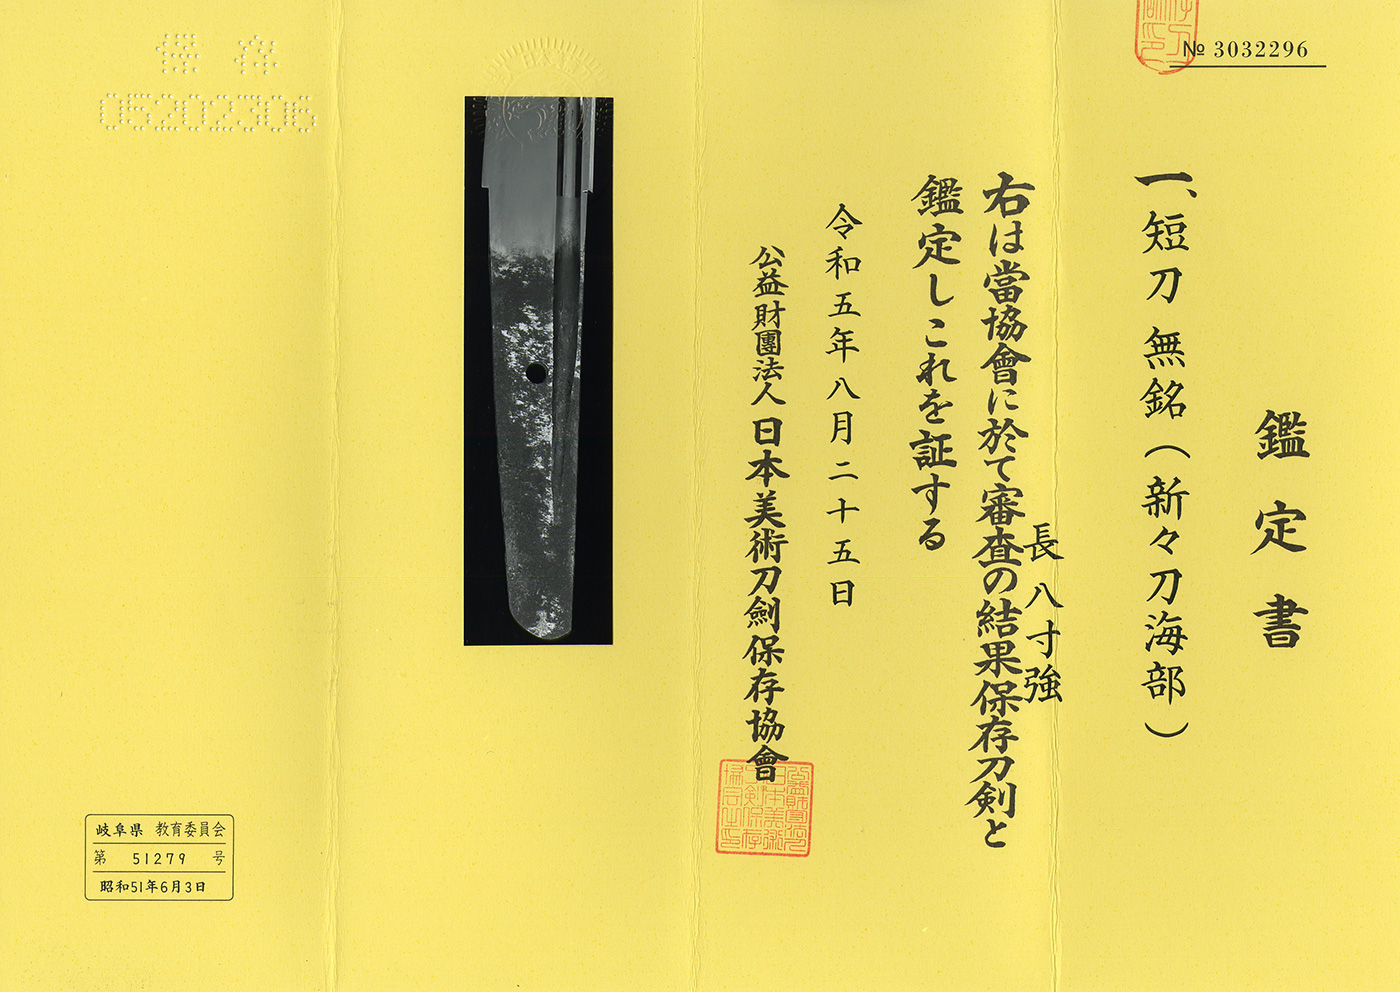 № 3032296
鑑定書
一、短刀 無銘(新々刀海部)
長八寸強
右は當協會に於て審査の結果保存刀剣と
鑑定しこれを証する
令和五年八月二十五日
公益財團法人 日本美術刀劍保存協會
保存
05202306
岐阜県 教育委員会
第 51279 号
昭和51年6月3日